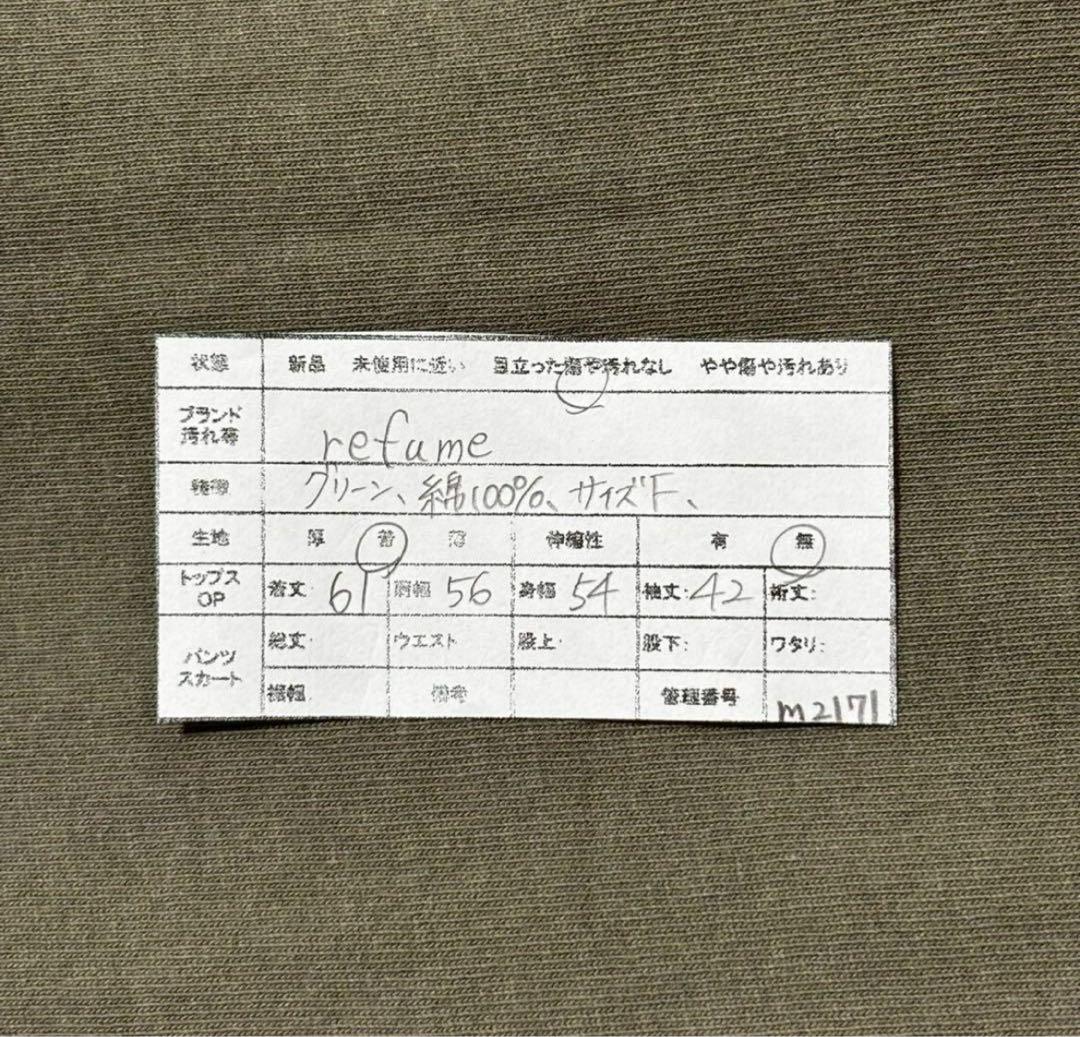 状態 新品 未使用に近い 目立った傷や汚れなし やや傷や汚れあり
ブランド
汚れ等 refume
特徴 グリーン、綿100%、サイズF、
生地 厚 普 薄 伸縮性 有 無
トップス
OP 着丈: 61 肩幅 56 身幅 54 袖丈: 42 裄丈:
パンツ
スカート 総丈: ウエスト 股上: 股下: ワタリ:
裾幅 備考 管理番号 m2171